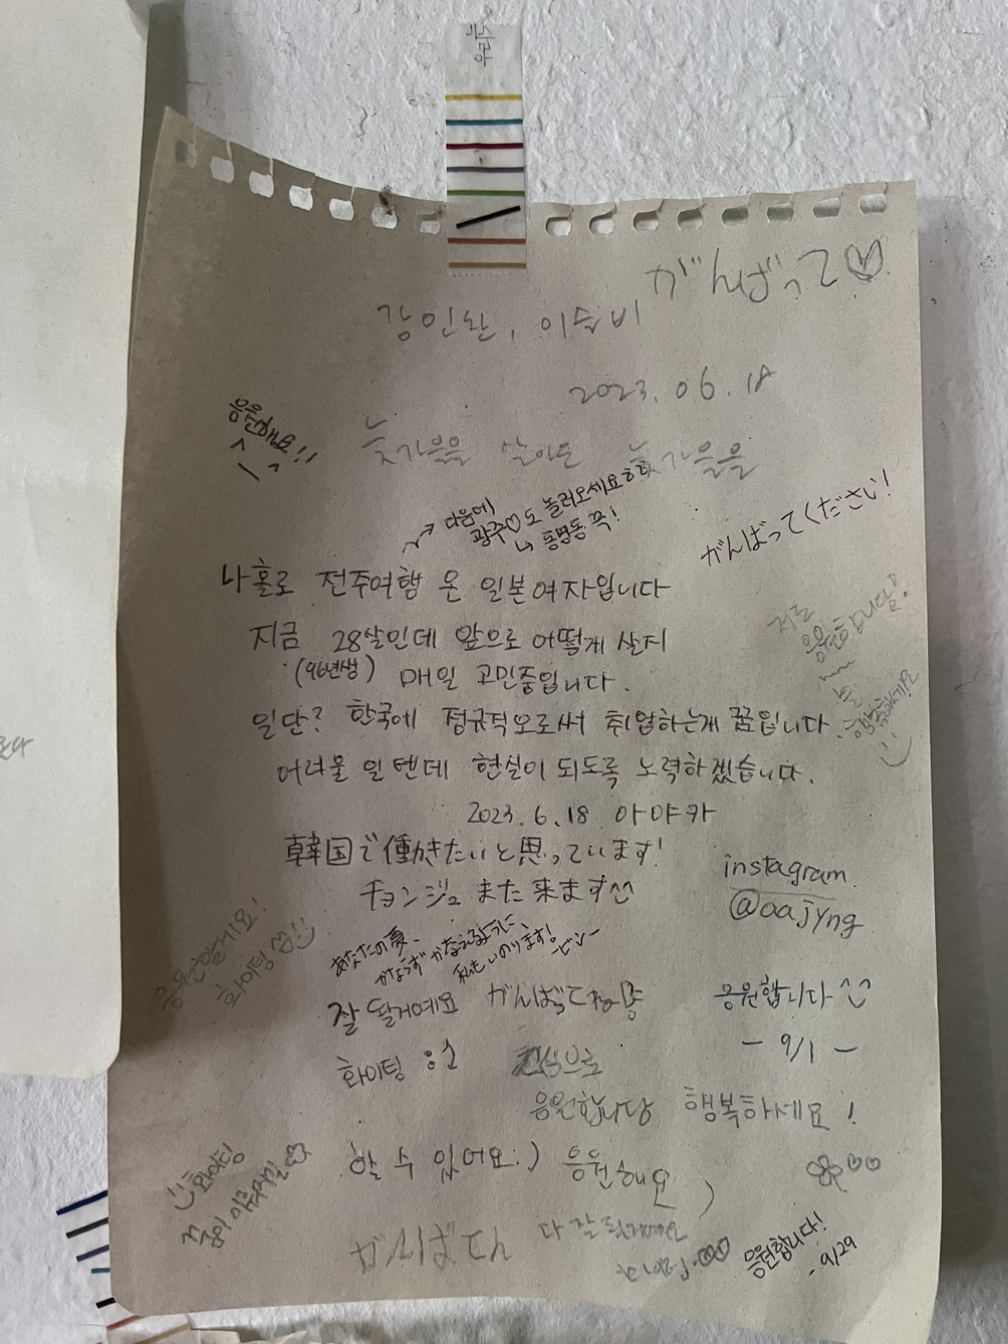 がんばって♡
강인완, 이슬비
2023.06.18
응원해요!!
늦가을을 닮아둔 늦가을을
다음에
광주♡도 놀러오세요ㅎㅎ
↳ 동명동 꼭!
がんばってください!
나홀로 전주여행 온 일본여자입니다
지금 28살인데 앞으로 어떻게 살지
(96년생) 매일 고민중입니다.
저도
응원합니다!
늘
행복하세요
일단? 한국에 정규직으로써 취업하는게 꿈입니다.
어려울 일텐데 현실이 되도록 노력하겠습니다.
2023.6.18 아야카
韓国で働きたいと思っています!
チョンジュまた来ます^^
instagram
@aajyng
응원할게요!
화이팅
あなたの夏、
かならずかなえるように、
私もいのります! -ビン-
잘 될거에요 がんばってね
응원합니다^^
- 9/1 -
화이팅 :)
진심으로
응원합니당 행복하세요!
할 수 있어요:) 응원해요
화이팅
꿈이 이루어질
がんばてん
다 잘 될거에요
응원합니다!
- 9/29